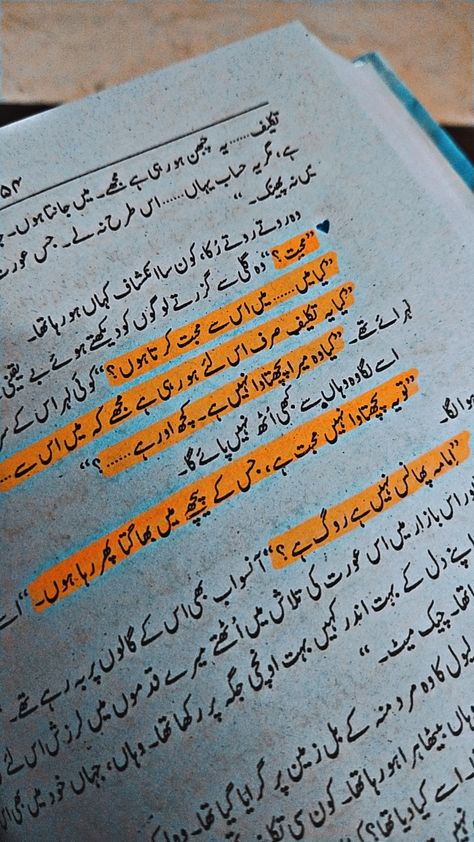 ۵۴
تکلیف......یہ چبھن ہو رہی ہے مجھے۔ میں جانتا ہوں۔
ہے، مگر یہ حساب یہاں......اس طرح نہ لے۔ جس عورت
میں نہ پھینک۔“
وہ روتے روتے رُکا، کون سا انکشاف کہاں ہو رہا تھا۔
”محبت؟“ وہ گلی سے گزرتے لوگوں کو دیکھتے ہوئے بے یقینی
”کیا میں......میں اس سے محبت کرتا ہوں؟“ کوئی لہر اس کے
”کیا یہ تکلیف صرف اس لئے ہو رہی ہے مجھے کہ میں اس سے......
لہرائے تھے۔ ”کیا وہ میرا پچھتاوا نہیں ہے۔ کچھ اور ہے......؟“
اسے لگا وہ وہاں سے کبھی اُٹھ نہیں پائے گا۔
”تو یہ پچھتاوا نہیں محبت ہے، جس کے پیچھے میں بھاگتا پھر رہا ہوں۔“ اسے
ہوا لگا۔
”امامہ پھانس نہیں ہے روگ ہے؟“ آنسو اب بھی اس کے گالوں پر بہہ رہے تھے۔
اس بازار میں اس عورت کی تلاش میں اُٹھتے میرے قدموں میں لرزش اس لئے
اپنے دل کے بہت اندر کہیں بہت اونچی جگہ پر رکھا تھا۔ وہاں، جہاں خود میں بھی
تھا۔ چیک میٹ۔“
کا وہ مرد منہ کے بل زمین پر گرایا گیا تھا۔ وہ
بیٹھا ہرا ہو رہا تھا۔ کون سی
اسے کیا دیا تھا؟